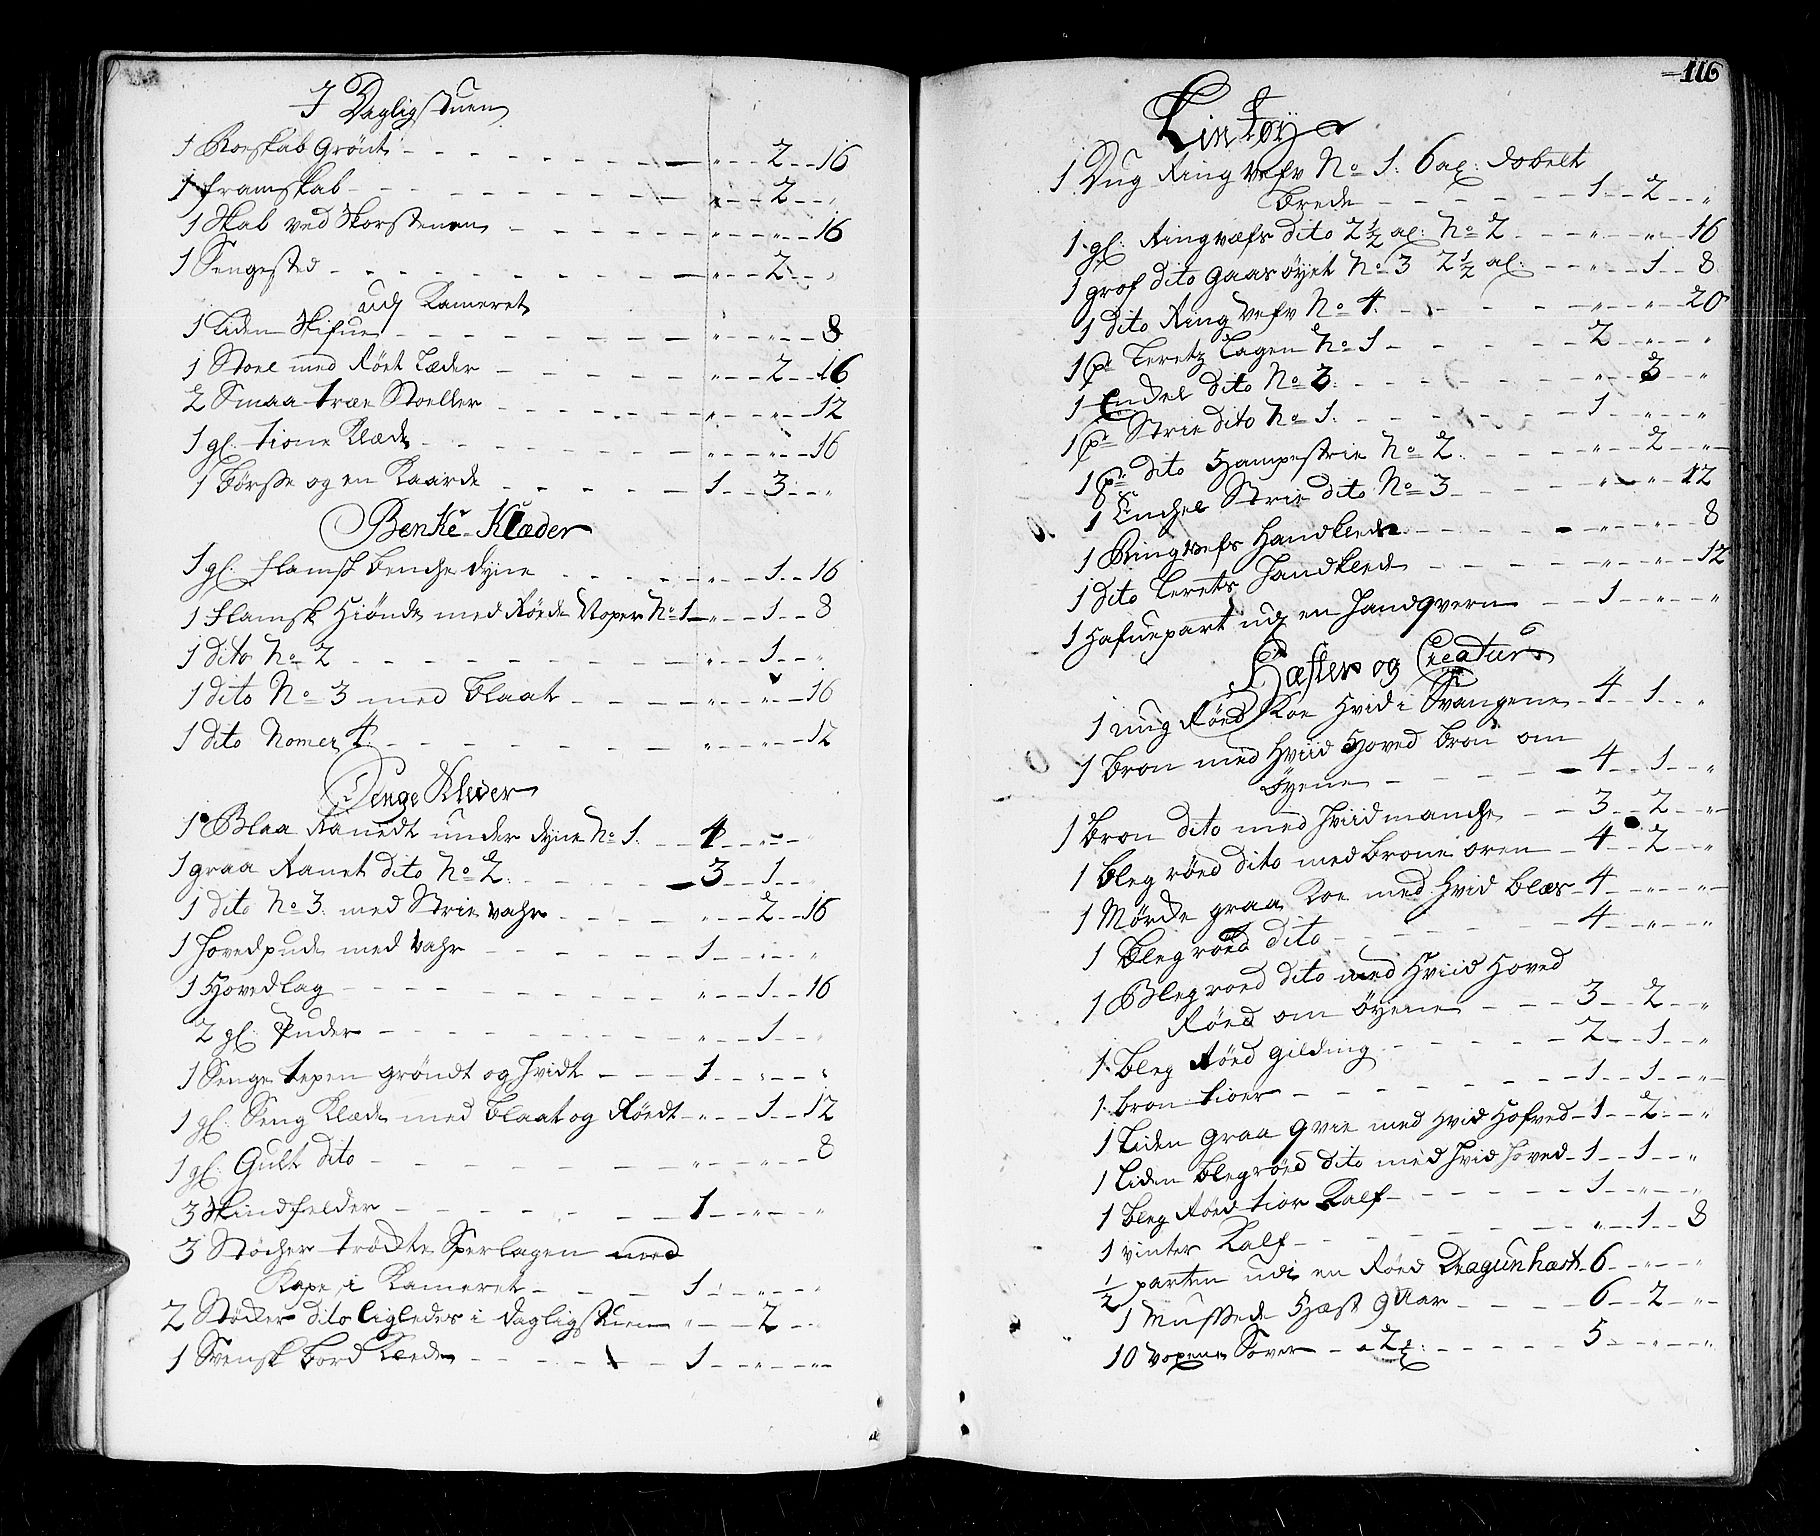 I Dagligstuen
1 Roeskab Grönt - - - „ - - 2 - - 16
1 framskab - - - „ - - 2 - - „
1 Skab ved Skorstenen - - - „ - - „ - - 16
1 Sengested - - - „ - - 2 - - „
udj Kameret
1 Liden Skifue - - - „ - - „ - - 8
1 Stoel med Röet Læder - - - „ - - 2 - - 16
2 Smaa træe Stoeller - - - „ - - „ - - 12
1 gl: tione Klæde - - - „ - - „ - - 16
1 Börsse og en Kaarde - - - 1 - - 3 - - „
Benke-Klæder
1 gl: flamsk benche dyne - - - „ - - 1 - - 16
1 Flamsk Hiönde med Röede Roper No 1 - „ - - 1 - - 8
1 dito No 2 - - - „ - - 1 - - „
1 dito No 3 med blaat - - - „ - - „ - - 16
1 dito Nomer 4 - - - „ - - „ - - 12
Senge Kleder
1 Blaa Ranedt under dyne No 1. - - 4 - - „ - - „
1 graa Ranet dito No 2. - - - 3 - - 1 - - „
1 dito No 3. med Strie vahr - - - „ - - 2 - - 16
1 Hovedpude med vahr - - - 1 - - „ - - „
1 Hovedlag - - - „ - - 1 - - 16
2 gl: Puder - - - „ - - 1 - - „
1 Senge tepen gröndt og hvidt - - - 1 - - „ - - „
1 gl: Seng Klæde med blaat og Röedt - „ - - 1 - - 12
1 gl: Gult dito - - - „ - - „ - - 8
3 Skindfelder - - - 1 - - „ - - „
3 Stöcher trödte Sperlagen med
Kape i Kameret - - - 1 - - „ - - „
2 Stöcker dito ligledes i dagligstuen „ - - 2 - -
1 Svensk bord Klede - - - 1 - - „ - - „
116
Lin Töy
1 Dug Ring vefv No 1. 6 al: dobelt
brede - - - 1 - - 2 - - „
1 gl: Ringvæfs dito 2 1/2 al: No 2 - - „ - - „ - - 16
1 grof dito Gaasöyet No 3 2 1/2 al: - - „ - - 1 - - 8
1 dito Ring vefv No 4. - - - „ - - „ - - 20
1 pr Leretz Lagen No 1 - - - 2 - - „ - - „
1 Endel dito No 3. - - - „ - - 3 - - „
1 pr Strie dito No 1. - - - 1 - - „ - - „
1 pr dito Hampestrie No 2. - - - „ - - 2 - - „
1 Enchel Strie dito No 3 - - - „ - - „ - - 12
1 Ringvefs Handklede - - - „ - - „ - - 8
1 dito Lerets Handkled - - - „ - - „ - - 12
1 Hafuepart udj en Handqvern - - 1 - - „ - - „
Hæster og Creatur
1 ung Röed Koe Hvid i Svangene - 4 - - 1 - - „
1 bron med Hviid Hoved bron om
Öyene - - - 4 - - 1 - - „
1 bron dito med Hviid manche - - 3 - - 2 - - „
1 bleg röed dito med brone oren - 4 - - 2 - - „
1 Mörcke graa Koe med Hvid bles - 4 - - „ - - „
1 bleg röed dito - - - 4 - - „ - - „
1 Blegroed dito med Hviid Hoved
Röed om Öyene - - - 3 - - 2 - - „
1 bleg Röed Gilding - - - 2 - - 1 - - „
1 bron tioer - - - 1 - - 1 - - „
1 Liden Graa Qvie med Hvid Hofved - 1 - - 2 - - „
1 Liden blegröed dito med Hvid Hoved - 1 - - 1 - - „
1 bleg Röed tior Kalf - - - 1 - - „ - - „
1 vinter Kalf - - - „ - - 1 - - 8
1/2 parten udi en Röed Dragunhæst - 6 - - „ - - „
1 Mussede Hæst 9 Aar - - - 6 - - 2 - - „
10 voxene Sover - - a 2 - - - 5 - - „ - - „